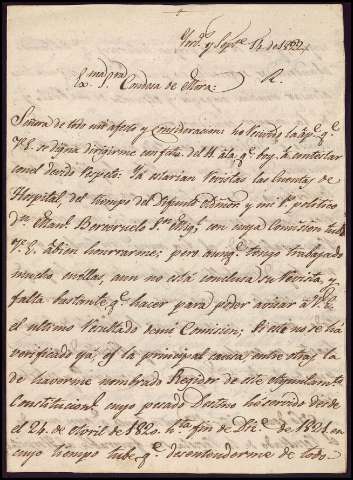 y Sepre 14 de 1822
Exma Sra Condesa de
R.
Señora de todo mi afecto y consideracion: he recivido la apc qe
V.E. se digna dirigirme con fcha del 4 á la qe boy á contestar
con el devido respeto: Ya estarian vistas las Cuentas de
Hospital, del tiempo del Difunto y mi Po politico
Dn Manl Berruruelo, con cuya Comision tubo
V.E. á bien honrrarme; pero aunqe tengo trabajado
mucho en ellas, aun no está conclusa su Revista, y
falta bastante qe hacer para poder avisar á V.E.
el ultimo resultado de mi Comision; Si esto no se há
verificado ya, es la principal causa entre otras la
de haverme nombrado Regidor de este Ayuntamto
Constitucionl cuyo pesado Destino hé corrido desde
el 24 de Abril de 1820 hta fin de Dice de 1821 en
cuyo tiempo tube qe desentenderme de todo